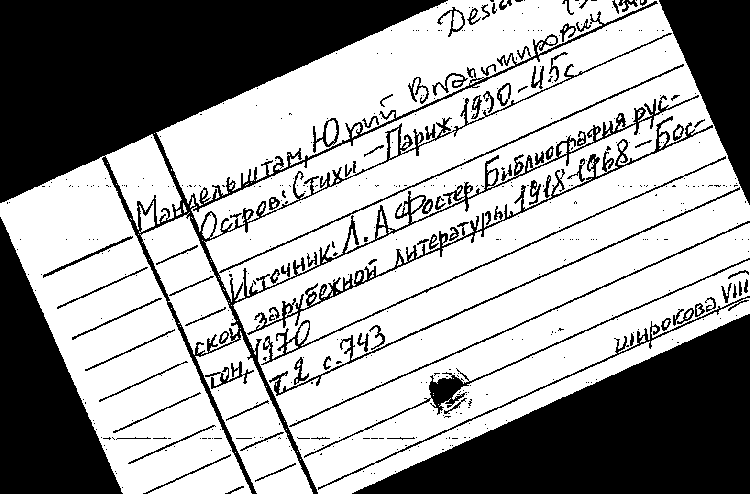 Desid
Мандельштам, Юрий Владимирович
Остров: Стихи. – Париж, 1930. – 45 с.
Источник: Л. А. Фостер. Библиография рус-
ской зарубежной литературы. 1918-1968. – Бос-
тон, 1970
т. 2, с. 743
широкова, VIII